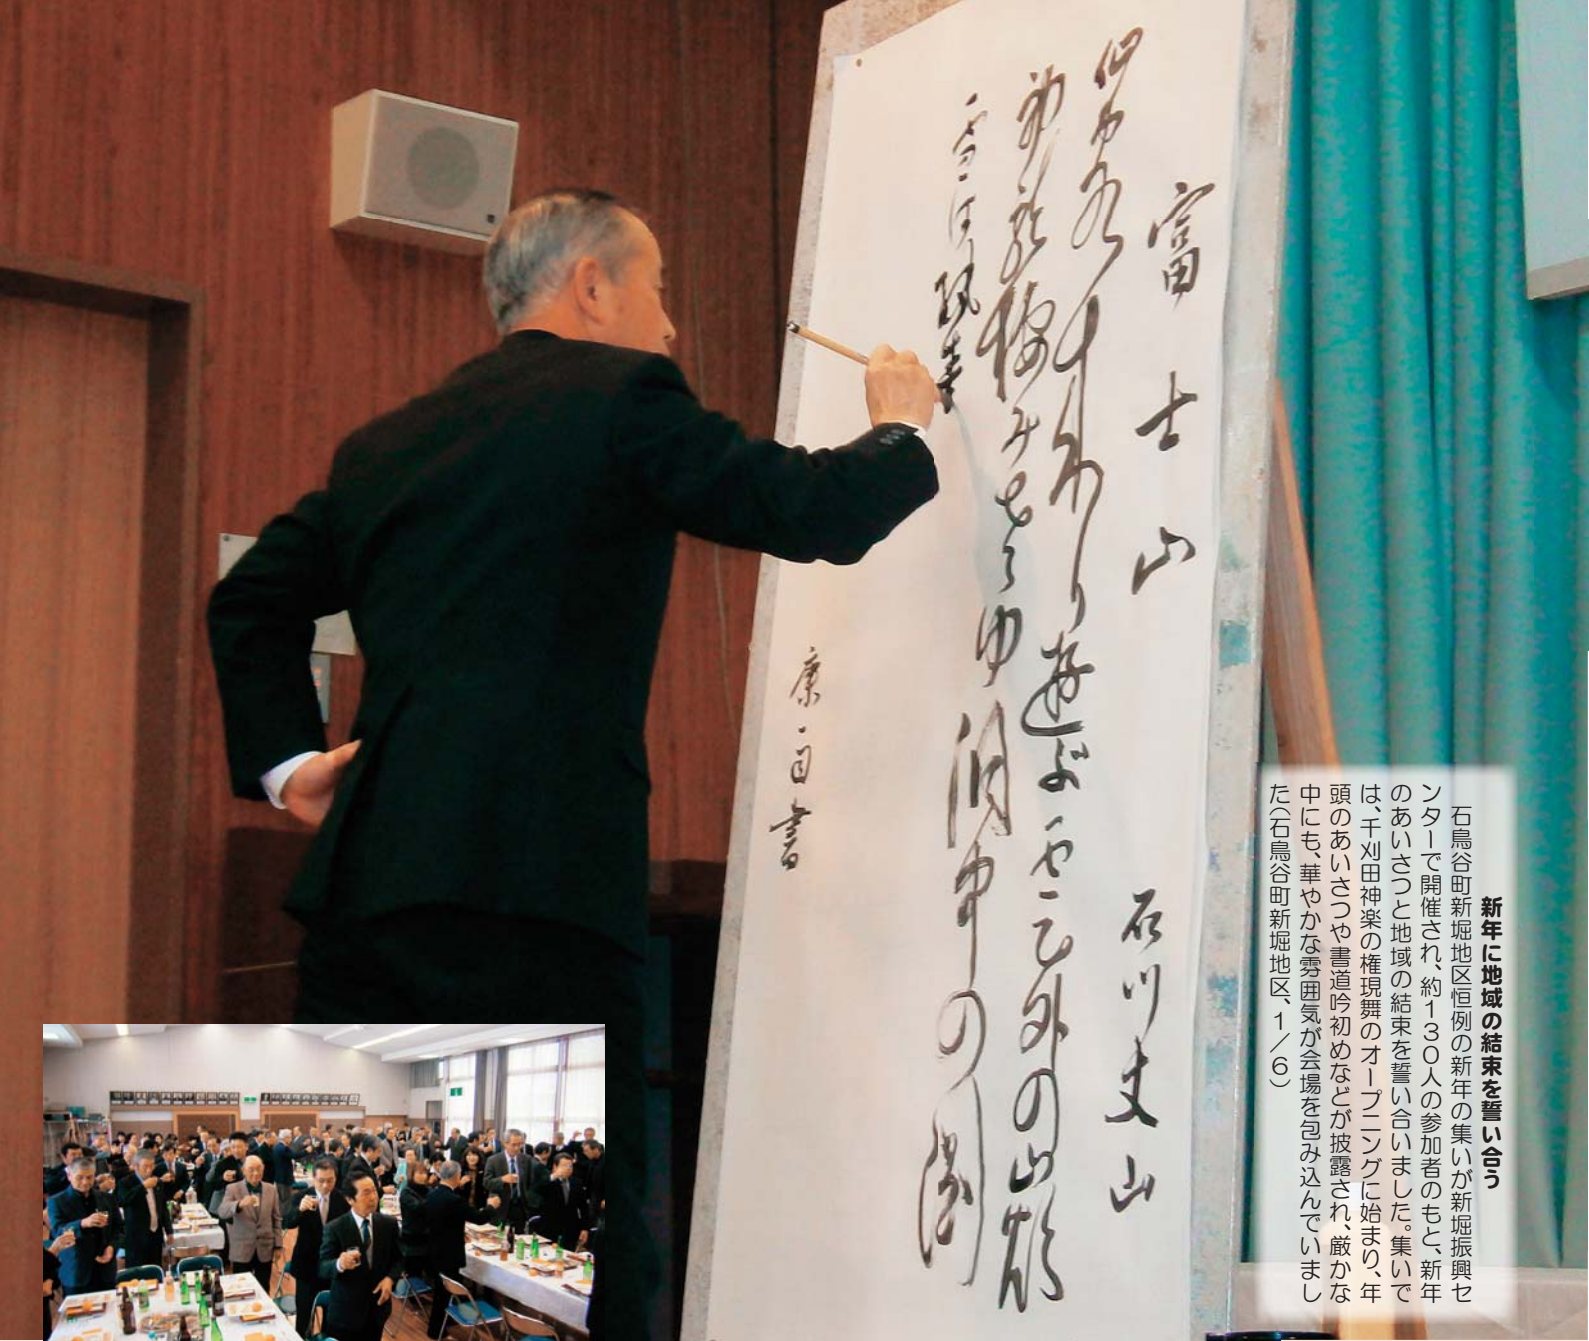 新年に地域の結束を誓い合う
石鳥谷町新堀地区恒例の新年の集いが新堀振興セ
ンターで開催され、約130人の参加者のもと、新年
のあいさつと地域の結束を誓い合いました。集いで
は、千刈田神楽の権現舞のオープニングに始まり、年
頭のあいさつや書道吟初めなどが披露され、厳かな
中にも、華やかな雰囲気が会場を包み込んでいまし
た(石鳥谷町新堀地区、1/6)
富士山 石川丈山
仙客来り遊ぶ雲外の
神龍棲み ゆ洞中の
雪は紈素
書